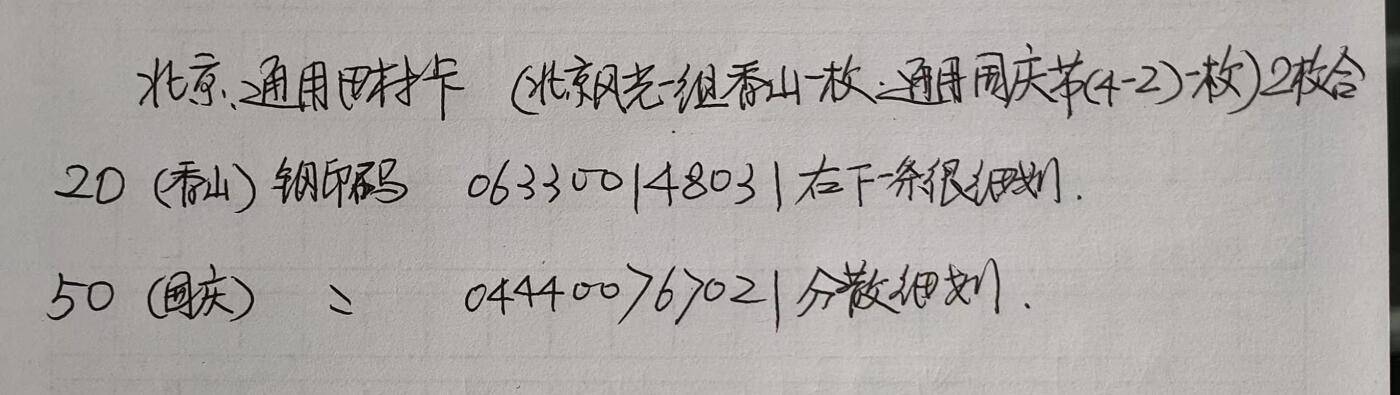 北京、通用田村卡 (北京风光一组香山一枚、通用国庆节(4-2)一枚)2枚合
20 (香山) 钢印码 063300148031 右下一条很细划.
50 (国庆) 〃 044400767021 分散细划.